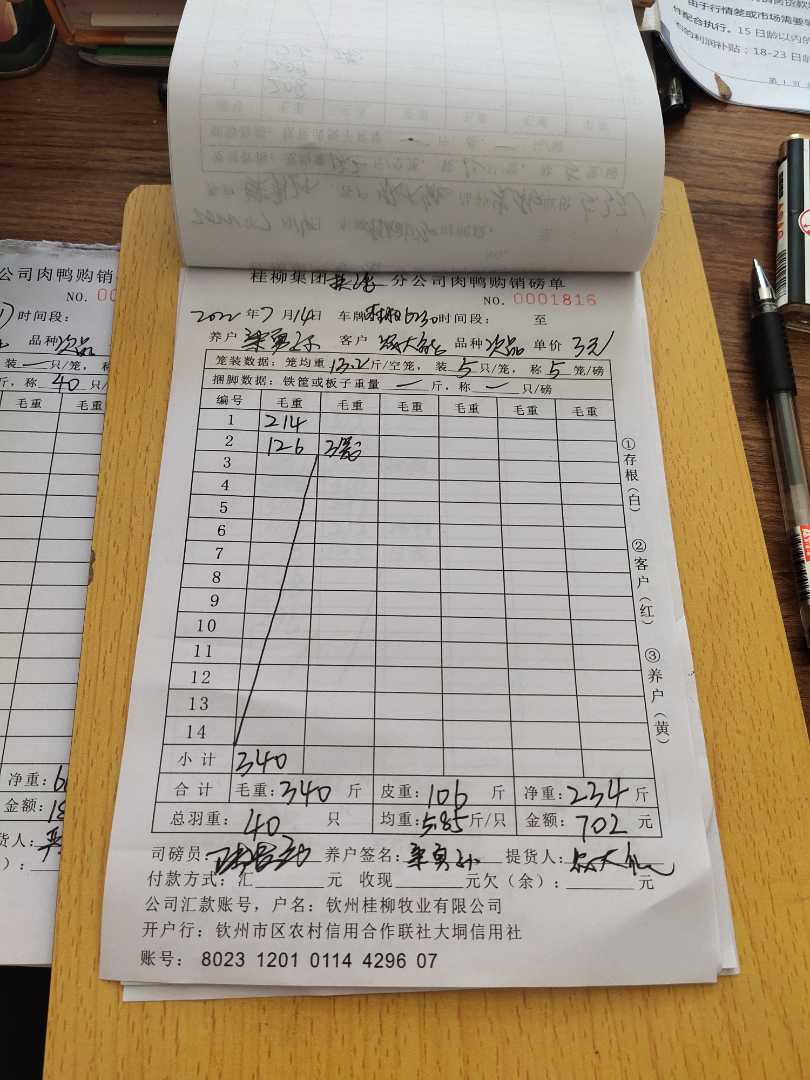 件配合执行。15 日龄以内的
的利润补贴：18-23 日龄
公司肉鸭购销磅
NO.
时间段：
品种 次品
装 一 只/笼，
斤，称 40 只/
毛重 毛重
净重：
金额：
桂柳集团 分公司肉鸭购销磅单
NO. 0001816
2022 年 7 月 14 日 车牌 时间段： 至
养户 客户 品种 次品 单价 3元
笼装数据：笼均重 13.2 斤/空笼， 装 5 只/笼， 称 5 笼/磅
捆脚数据：铁筐或板子重量 一 斤，称 一 只/磅
编号 毛重 毛重 毛重 毛重 毛重 毛重
1 214
2 126
3
4
5
6
7
8
9
10
11
12
13
14
小计 340
合计 毛重：340 斤 皮重：106 斤 净重：234 斤
总羽重： 40 只 均重：5.85 斤/只 金额：702 元
司磅员： 养户签名： 提货人：
付款方式：汇 元 收现 元欠（余）： 元
公司汇款账号，户名：钦州桂柳牧业有限公司
开户行：钦州市区农村信用合作联社大垌信用社
账号： 8023 1201 0114 4296 07
①存根（白）
②客户（红）
③养户（黄）